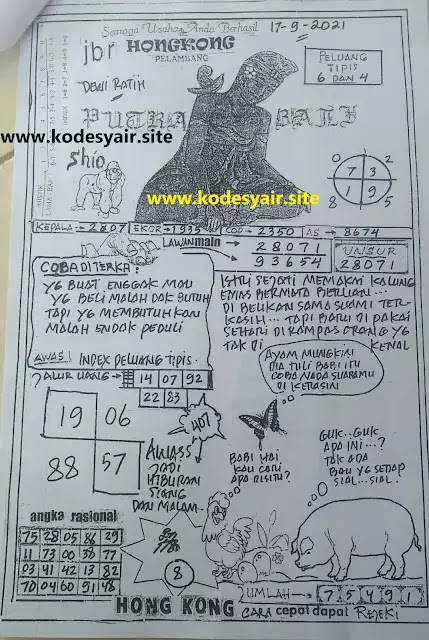 Semoga Usaha Anda Berhasil
17-9-2021
jbr HONGKONG
PELAMBANG
DEWI RATIH
PELUANG
TIPIS
6 DAN 4
PUTRA BALI
www.kodesyair.site
Shio
www.kodesyair.site
0 2
7 3
1 9
8 5
KEPALA → 2807 EKOR → 1935 COP → 2350 AS → 8674
LAWAN main → 28071
93654
UNSUR
28071
COBA DI TERKA:
YG BUAT ENGGAK MAU
YG BELI MALAH DAK BUTUH
TAPI YG MEMBUTUHKAN
MALAH ENDAK PEDULI
AWAS! INDEX PELUANG TIPIS.
ISTRI SEJATI MEMAKAI KALUNG
EMAS BERMATA BERLIAN...
DI BELIKAN SAMA SUAMI TER-
KASIH... TAPI BARU DI PAKAI
SEHARI DI RAMPAS ORANG YG
TAK DI KENAL
JALUR UANG → 14 07 92
22 83
AYAM MUNGKIN
DIA TULI BABI ITU
COBA NADA SUARAMU
DI KERASIN
19 06
88 57
407
AWASS
JADI
HIBURAN
SIANG
DAN MALAM.
BABI HAI
KAU CARI
APA DISITU?
GUK..GUK
APA INI...?
TAK ADA
BAU YG SEDAP
SIAL...SIAL.
angka rasional
75 28 05 86 29
11 73 00 38 77
03 41 42 13 82
70 04 60 91 48
8
JUMLAH → 7 5 4 9 1
HONG KONG CARA cepat dapat REJEKI